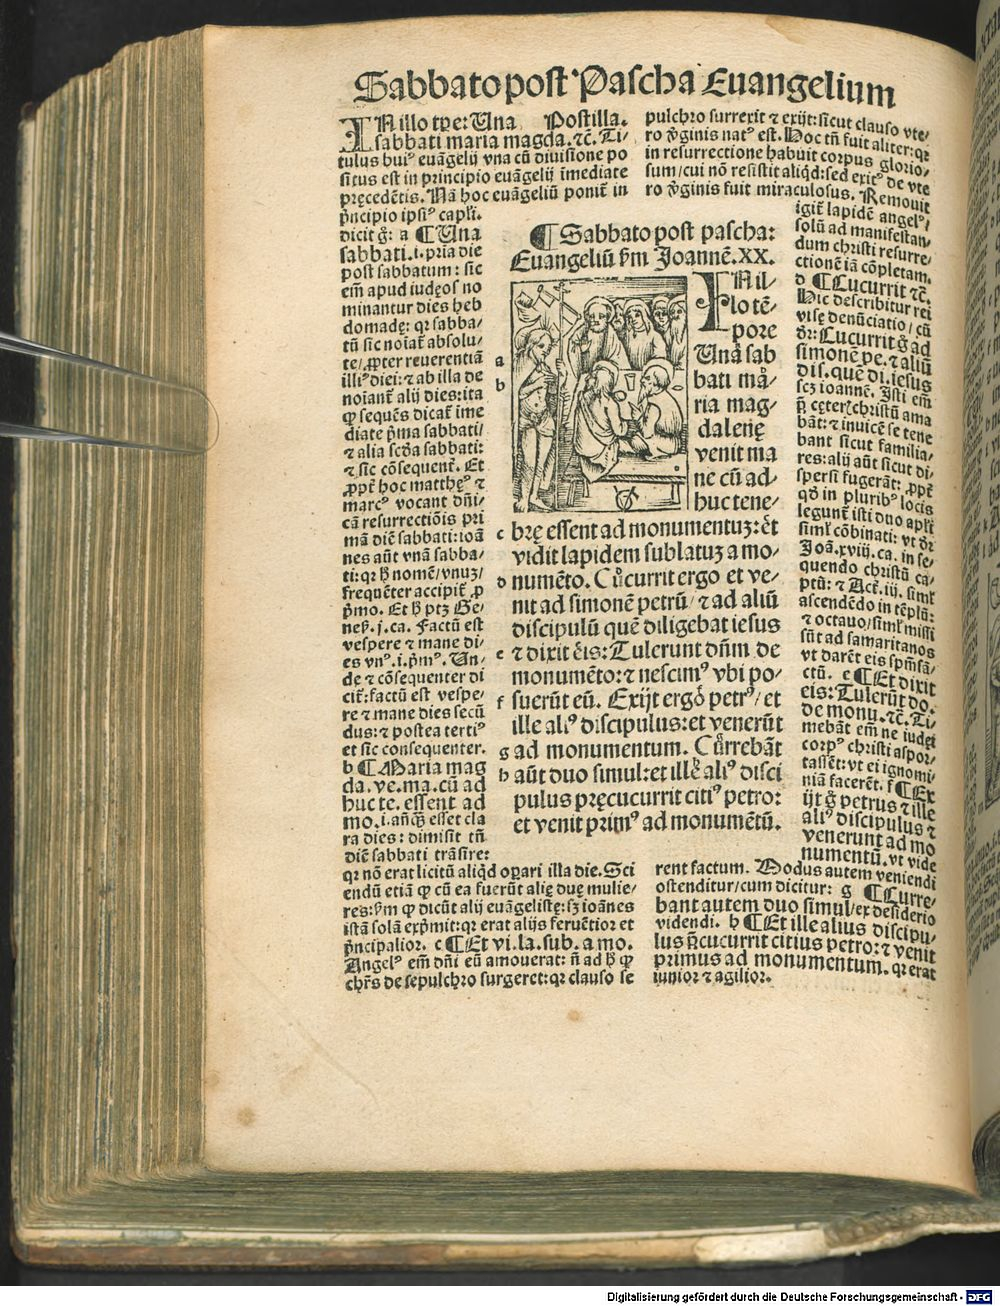 Sabbato post Pascha Euangelium
IN illo tpe: Una Postilla.
sabbati maria magda. ⁊c̃. Ti-
tulus huiꝰ euãgelij vna cũ diuisione po
situs est in principio euãgelij imediate
pręcedẽtis. Nã hoc euãgeliũ ponit̃ in
p̃ncipio ipsiꝰ capl̃i.
dicit g̃: a ¶ Una
sabbati .i. pria die
post sabbatum: sic
em̃ apud iudęos no
minantur dies heb
domadę: qr sabba/
tũ sic noiat̃ absolu/
te/ ꝓpter reuerentiã
illiꝰ diei: ⁊ ab illa de
noiant̃ alij dies: ita
ꝙ sequẽs dicat̃ ime
diate p̃ma sabbati/
⁊ alia scd̃a sabbati:
⁊ sic cõsequent̃. Et
ꝓpt̃ hoc matthęꝰ ⁊
marcꝰ vocant dñi-
cã resurrectiõis pri
mã diẽ sabbati: ioã
nes aũt vnã sabba/
ti: qr hꝫ nomẽ/ vnuꝫ/
frequẽter accipit̃ ꝓ
p̃mo. Et hꝫ ptꝫ Ge-
neß. j. ca. Factũ est
vespere ⁊ mane di-
es vnꝰ .i. p̃mꝰ. Un-
dę ⁊ cõsequenter di
cit̃: factũ est vespe-
re ⁊ mane dies secũ
dus: ⁊ postea tertiꝰ
et sic consequenter.
b ¶ Maria mag
da. ve. ma. cũ ad
huc te. essent ad
mo. .i. añꝗ̃ esset cla
ra dies: dimisit tñ
diẽ sabbati trãsire:
qr nõ erat licitũ aliqd oꝑari illa die. Sci
endũ etiã ꝙ cũ ea fuerũt alię duę mulie/
res: ẜm ꝙ dicũt alij euãgelistę: sꝫ ioãnes
istã solã exp̃mit: qr erat alijs feruẽtior et
p̃ncipalior. c ¶ Et vi. la. sub. a mo.
Angelꝰ em̃ dñi eũ amouerat: ñ ad hꝫ ꝙ
chr̃s de sepulchro surgeret: qr clauso se
pulchro surrexit ⁊ exijt: sicut clauso vte/
ro ṽginis natꝰ est. Hoc tñ fuit aliter: qr
in resurrectione habuit corpus glorio/
sum/ cui nõ resistit aliqd: sed exitꝰ de vte
ro ṽginis fuit miraculosus. Remouit
igit̃ lapidẽ angelꝰ/
solũ ad manifestan/
dum christi resurre/
ctionẽ iã cõpletam.
d ¶ Cucurrit ⁊c̃.
Hic describitur rei
visę denũciatio/ cũ
dr̃: Cucurrit g̃ ad
simonẽ pe. ⁊ aliũ
dis. quẽ di. iesus
scꝫ ioannẽ. Isti em̃
p̃ cęter̃ christũ ama
bãt: ⁊ inuicẽ se tene
bant sicut familia/
res: alij aũt sicut di-
spersi fugerãt: ꝓpt̃
qd̃ in pluribꝰ locis
legunt̃ isti duo apl̃i
siml̃ cõbinati: vt dr̃
Joã. xviij. ca. in se-
quendo christũ ca/
ptũ: ⁊ Act̃. iij. siml̃
ascendẽdo in tẽplũ:
⁊ octauo/ siml̃ missi
sũt ad samaritanos
vt darẽt eis spm̃ sã/
ctũ. e ¶ Et dixit
eis: Tulerũt do.
de monu. ⁊c̃. Ti-
mebãt em̃ ne iudei
corpꝰ christi aspor/
tassẽt: vt ei ignomi/
niã facerẽt. f ¶ Ex
ijt g̃ petrus ⁊ ille
aliꝰ discipulus ⁊
venerunt ad mo
numentũ. vt vide
rent factum. Modus autem veniendi
ostenditur/ cum dicitur: g ¶ Curre-
bant autem duo simul/ ex desiderio
videndi. h ¶ Et ille alius discipu/
lus p̃cucurrit citius petro: ⁊ venit
primus ad monumentum. qr erat
iunior ⁊ agilior.
¶ Sabbato post pascha:
Euangeliũ ẜm Joannẽ. XX.
IN il-
lo tẽ-
pore
Una sab
bati ma-
ria mag-
dalenę
venit ma
ne cũ ad-
huc tene-
brę essent ad monumentuꝫ: ⁊
vidit lapidem sublatuꝫ a mo-
numẽto. Cucurrit ergo et ve-
nit ad simonẽ petrũ/ ⁊ ad aliũ
discipulũ quẽ diligebat iesus
⁊ dixit eis: Tulerunt dñm de
monumẽto: ⁊ nescimꝰ vbi po-
suerũt eũ. Exijt ergo petrꝰ/ et
ille aliꝰ discipulus: et venerũt
ad monumentum. Currebãt
aũt duo simul: et ille aliꝰ disci
pulus pręcucurrit citiꝰ petro:
et venit primꝰ ad monumẽtũ.
a
b
c
d
e
f
g
h
Digitalisierung gefördert durch die Deutsche Forschungsgemeinschaft - DFG